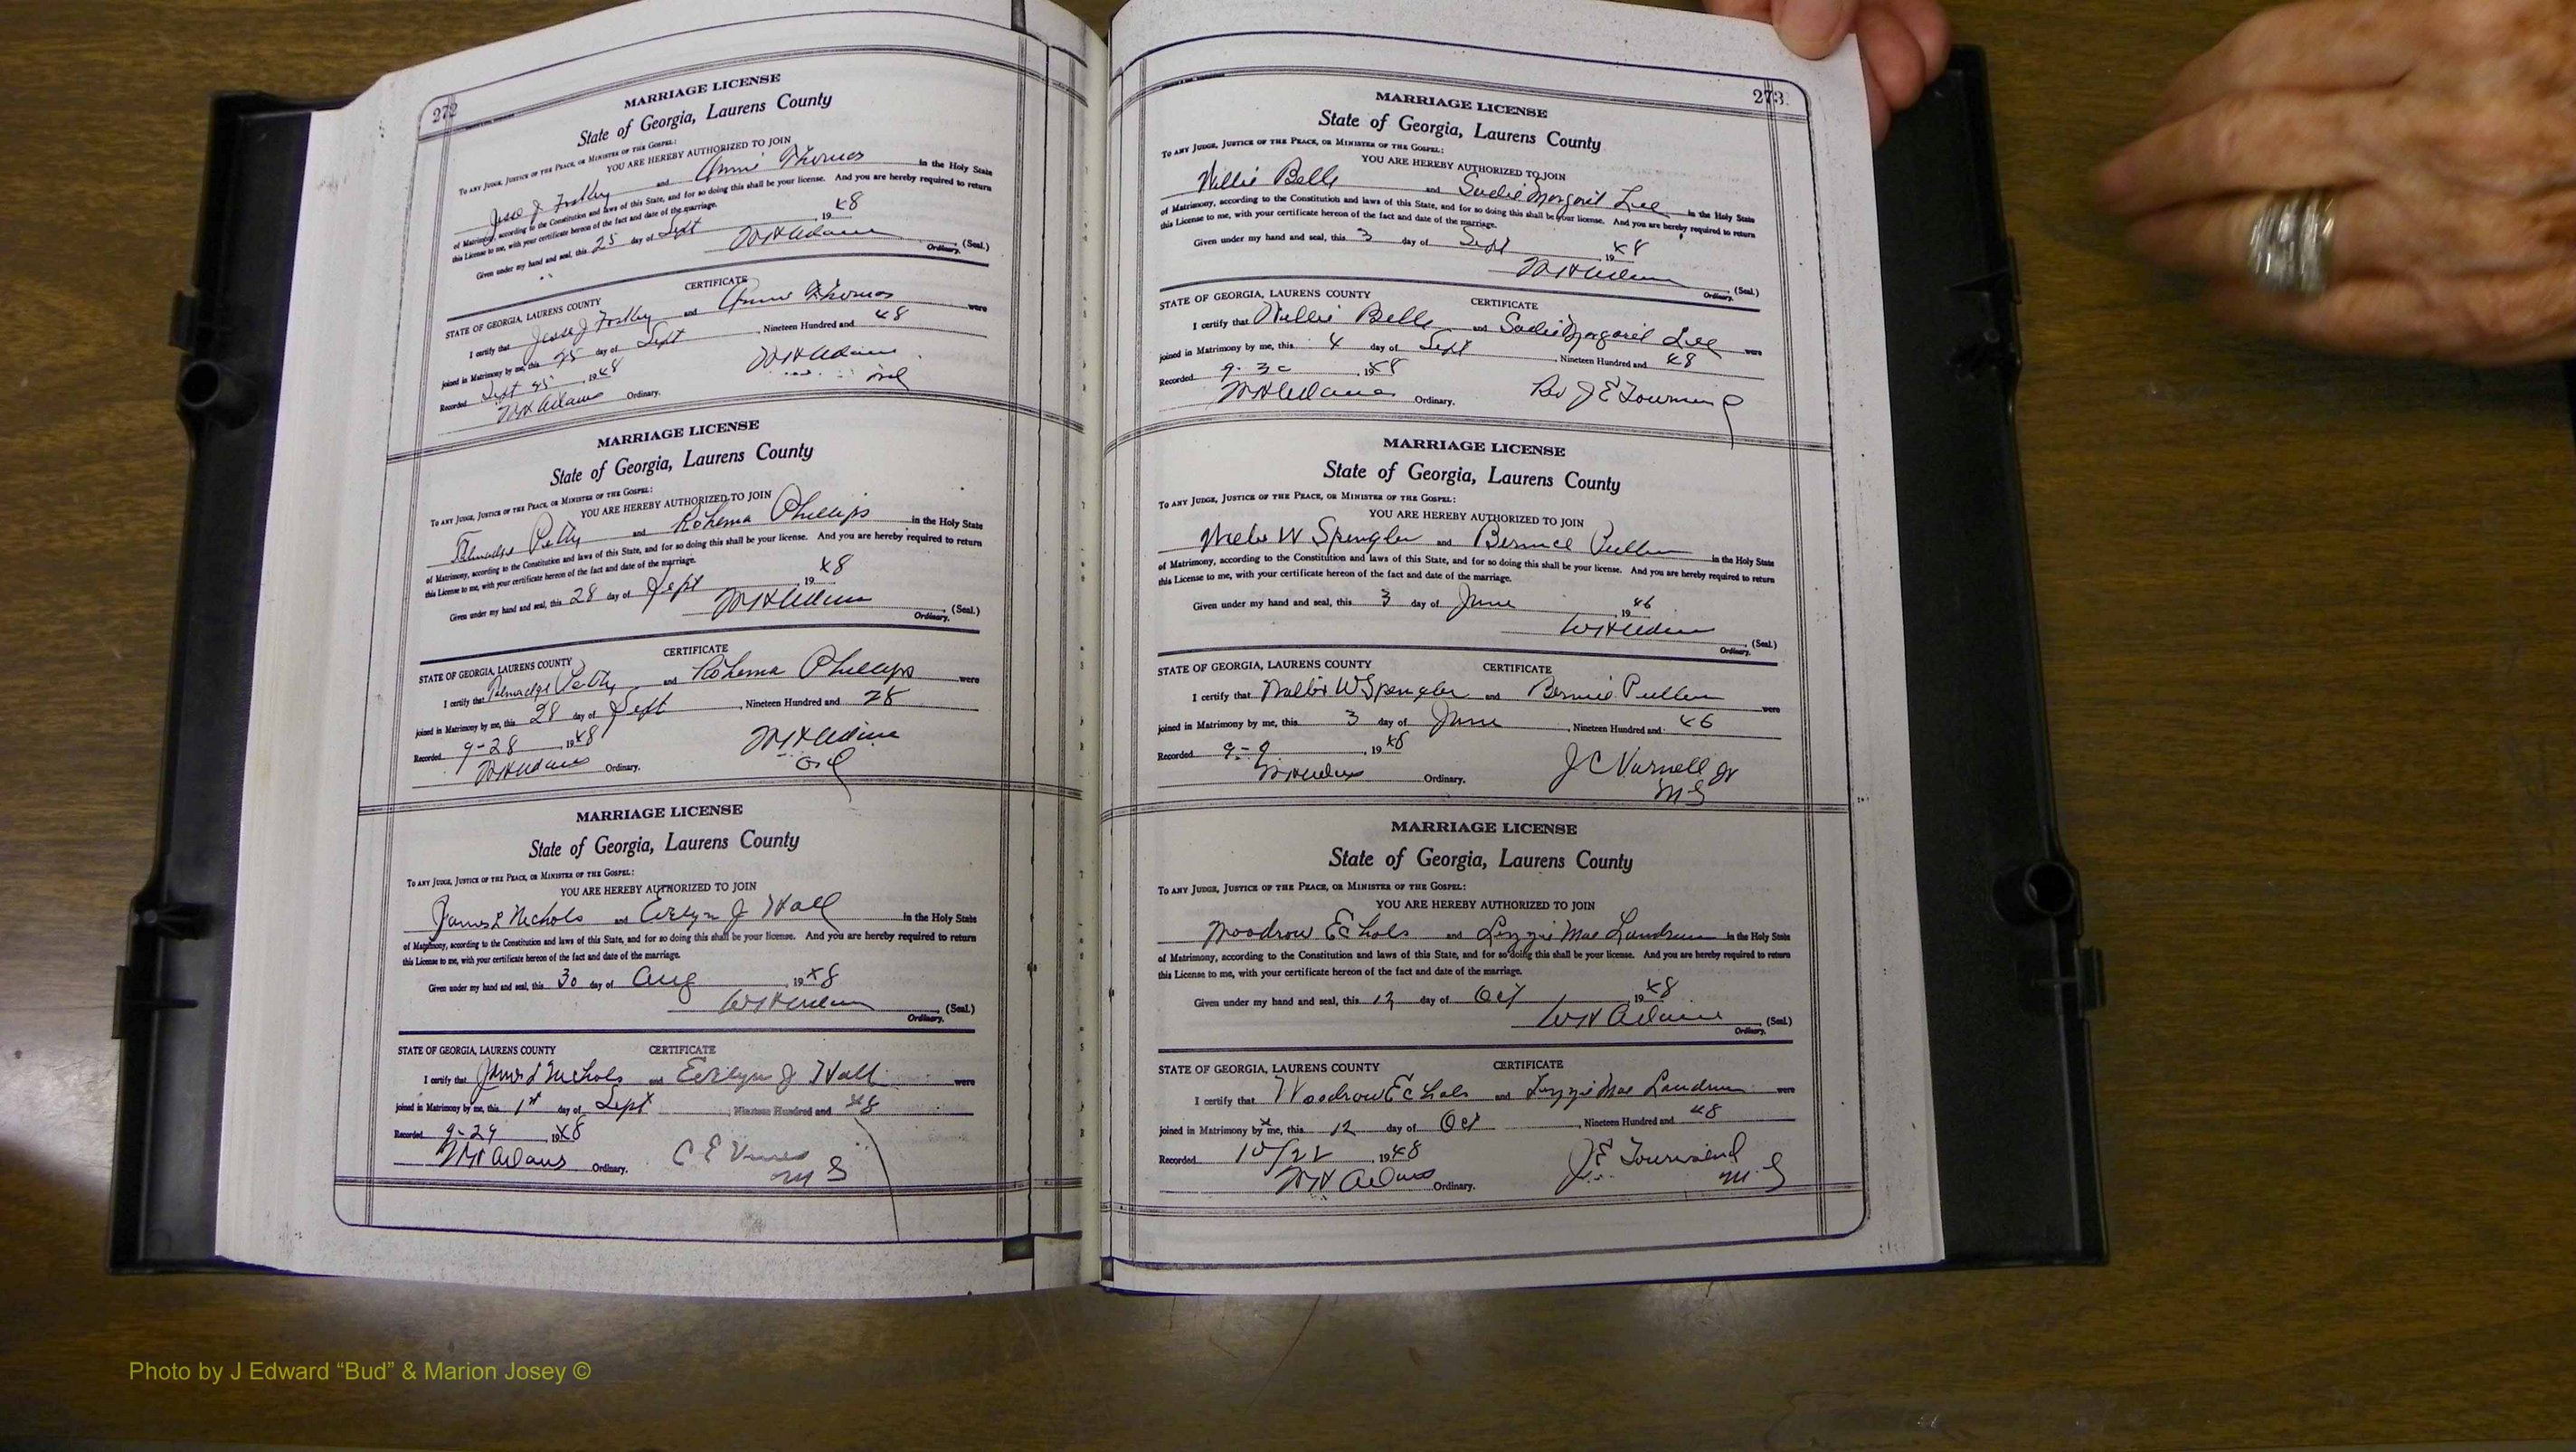 272
MARRIAGE LICENSE
State of Georgia, Laurens County
TO ANY JUDGE, JUSTICE OF THE PEACE, OR MINISTER OF THE GOSPEL:
YOU ARE HEREBY AUTHORIZED TO JOIN
Jesse J and Annie Thomas in the Holy State
of Matrimony, according to the Constitution and laws of this State, and for so doing this shall be your license. And you are hereby required to return
this License to me, with your certificate hereon of the fact and date of the marriage.
Given under my hand and seal, this 25 day of Sept, 1948
WH Adams (Seal.)
Ordinary.
STATE OF GEORGIA, LAURENS COUNTY CERTIFICATE
I certify that Jesse J and Annie Thomas were
joined in Matrimony by me, this 25 day of Sept, Nineteen Hundred and 48
Recorded Sept 25, 1948 WH Adams
WH Adams Ordinary. Ord
MARRIAGE LICENSE
State of Georgia, Laurens County
TO ANY JUDGE, JUSTICE OF THE PEACE, OR MINISTER OF THE GOSPEL:
YOU ARE HEREBY AUTHORIZED TO JOIN
Talmadge Petty and Rohema Phillips in the Holy State
of Matrimony, according to the Constitution and laws of this State, and for so doing this shall be your license. And you are hereby required to return
this License to me, with your certificate hereon of the fact and date of the marriage.
Given under my hand and seal, this 28 day of Sept, 1948
WH Adams (Seal.)
Ordinary.
STATE OF GEORGIA, LAURENS COUNTY CERTIFICATE
I certify that Talmadge Petty and Rohema Phillips were
joined in Matrimony by me, this 28 day of Sept, Nineteen Hundred and 28
Recorded 9-28, 1948 WH Adams
WH Adams Ordinary. Ord
MARRIAGE LICENSE
State of Georgia, Laurens County
TO ANY JUDGE, JUSTICE OF THE PEACE, OR MINISTER OF THE GOSPEL:
YOU ARE HEREBY AUTHORIZED TO JOIN
James L Nichols and Evelyn J Hall in the Holy State
of Matrimony, according to the Constitution and laws of this State, and for so doing this shall be your license. And you are hereby required to return
this License to me, with your certificate hereon of the fact and date of the marriage.
Given under my hand and seal, this 30 day of Aug, 1948
WH Adams (Seal.)
Ordinary.
STATE OF GEORGIA, LAURENS COUNTY CERTIFICATE
I certify that James L Nichols and Evelyn J Hall were
joined in Matrimony by me, this 1st day of Sept, Nineteen Hundred and 48
Recorded 9-29, 1948
WH Adams Ordinary. C E
M G
273
MARRIAGE LICENSE
State of Georgia, Laurens County
TO ANY JUDGE, JUSTICE OF THE PEACE, OR MINISTER OF THE GOSPEL:
YOU ARE HEREBY AUTHORIZED TO JOIN
Willie Bell and Sadie Margaret Lee in the Holy State
of Matrimony, according to the Constitution and laws of this State, and for so doing this shall be your license. And you are hereby required to return
this License to me, with your certificate hereon of the fact and date of the marriage.
Given under my hand and seal, this 3 day of Sept, 1948
WH Adams (Seal.)
Ordinary.
STATE OF GEORGIA, LAURENS COUNTY CERTIFICATE
I certify that Willie Bell and Sadie Margaret Lee were
joined in Matrimony by me, this 4 day of Sept, Nineteen Hundred and 48
Recorded 9-30, 1948
WH Adams Ordinary. Rev J E Townsend
MARRIAGE LICENSE
State of Georgia, Laurens County
TO ANY JUDGE, JUSTICE OF THE PEACE, OR MINISTER OF THE GOSPEL:
YOU ARE HEREBY AUTHORIZED TO JOIN
W Spengler and Bernice Pullen in the Holy State
of Matrimony, according to the Constitution and laws of this State, and for so doing this shall be your license. And you are hereby required to return
this License to me, with your certificate hereon of the fact and date of the marriage.
Given under my hand and seal, this 3 day of June, 1946
WH Adams (Seal.)
Ordinary.
STATE OF GEORGIA, LAURENS COUNTY CERTIFICATE
I certify that W Spengler and Bernice Pullen were
joined in Matrimony by me, this 3 day of June, Nineteen Hundred and 46
Recorded 9-9, 19
WH Adams Ordinary. J C Varnell Jr
M G
MARRIAGE LICENSE
State of Georgia, Laurens County
TO ANY JUDGE, JUSTICE OF THE PEACE, OR MINISTER OF THE GOSPEL:
YOU ARE HEREBY AUTHORIZED TO JOIN
Woodrow Echols and Lizzie Mae Landrum in the Holy State
of Matrimony, according to the Constitution and laws of this State, and for so doing this shall be your license. And you are hereby required to return
this License to me, with your certificate hereon of the fact and date of the marriage.
Given under my hand and seal, this 12 day of Oct, 1948
WH Adams (Seal.)
Ordinary.
STATE OF GEORGIA, LAURENS COUNTY CERTIFICATE
I certify that Woodrow Echols and Lizzie Mae Landrum were
joined in Matrimony by me, this 12 day of Oct, Nineteen Hundred and 48
Recorded 10/22, 1948 J E Townsend
WH Adams Ordinary. M.G
Photo by J Edward “Bud” & Marion Josey ©